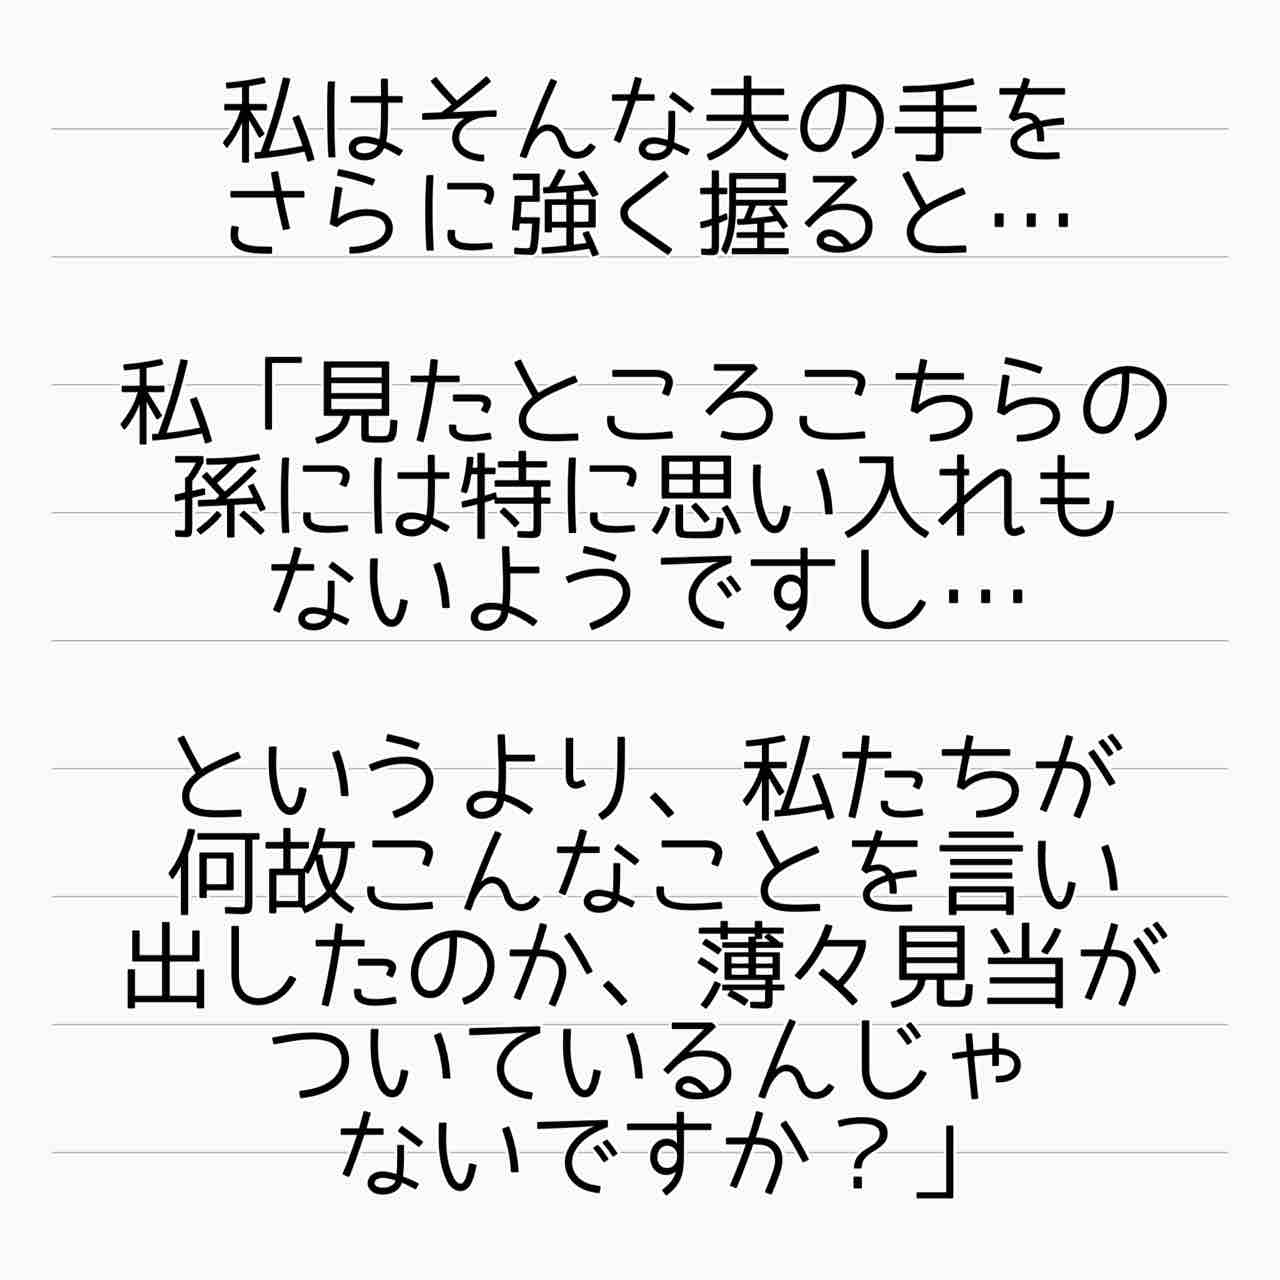 私はそんな夫の手を
さらに強く握ると…
私「見たところこちらの
孫には特に思い入れも
ないようですし…
というより、私たちが
何故こんなことを言い
出したのか、薄々見当が
ついているんじゃ
ないですか？」